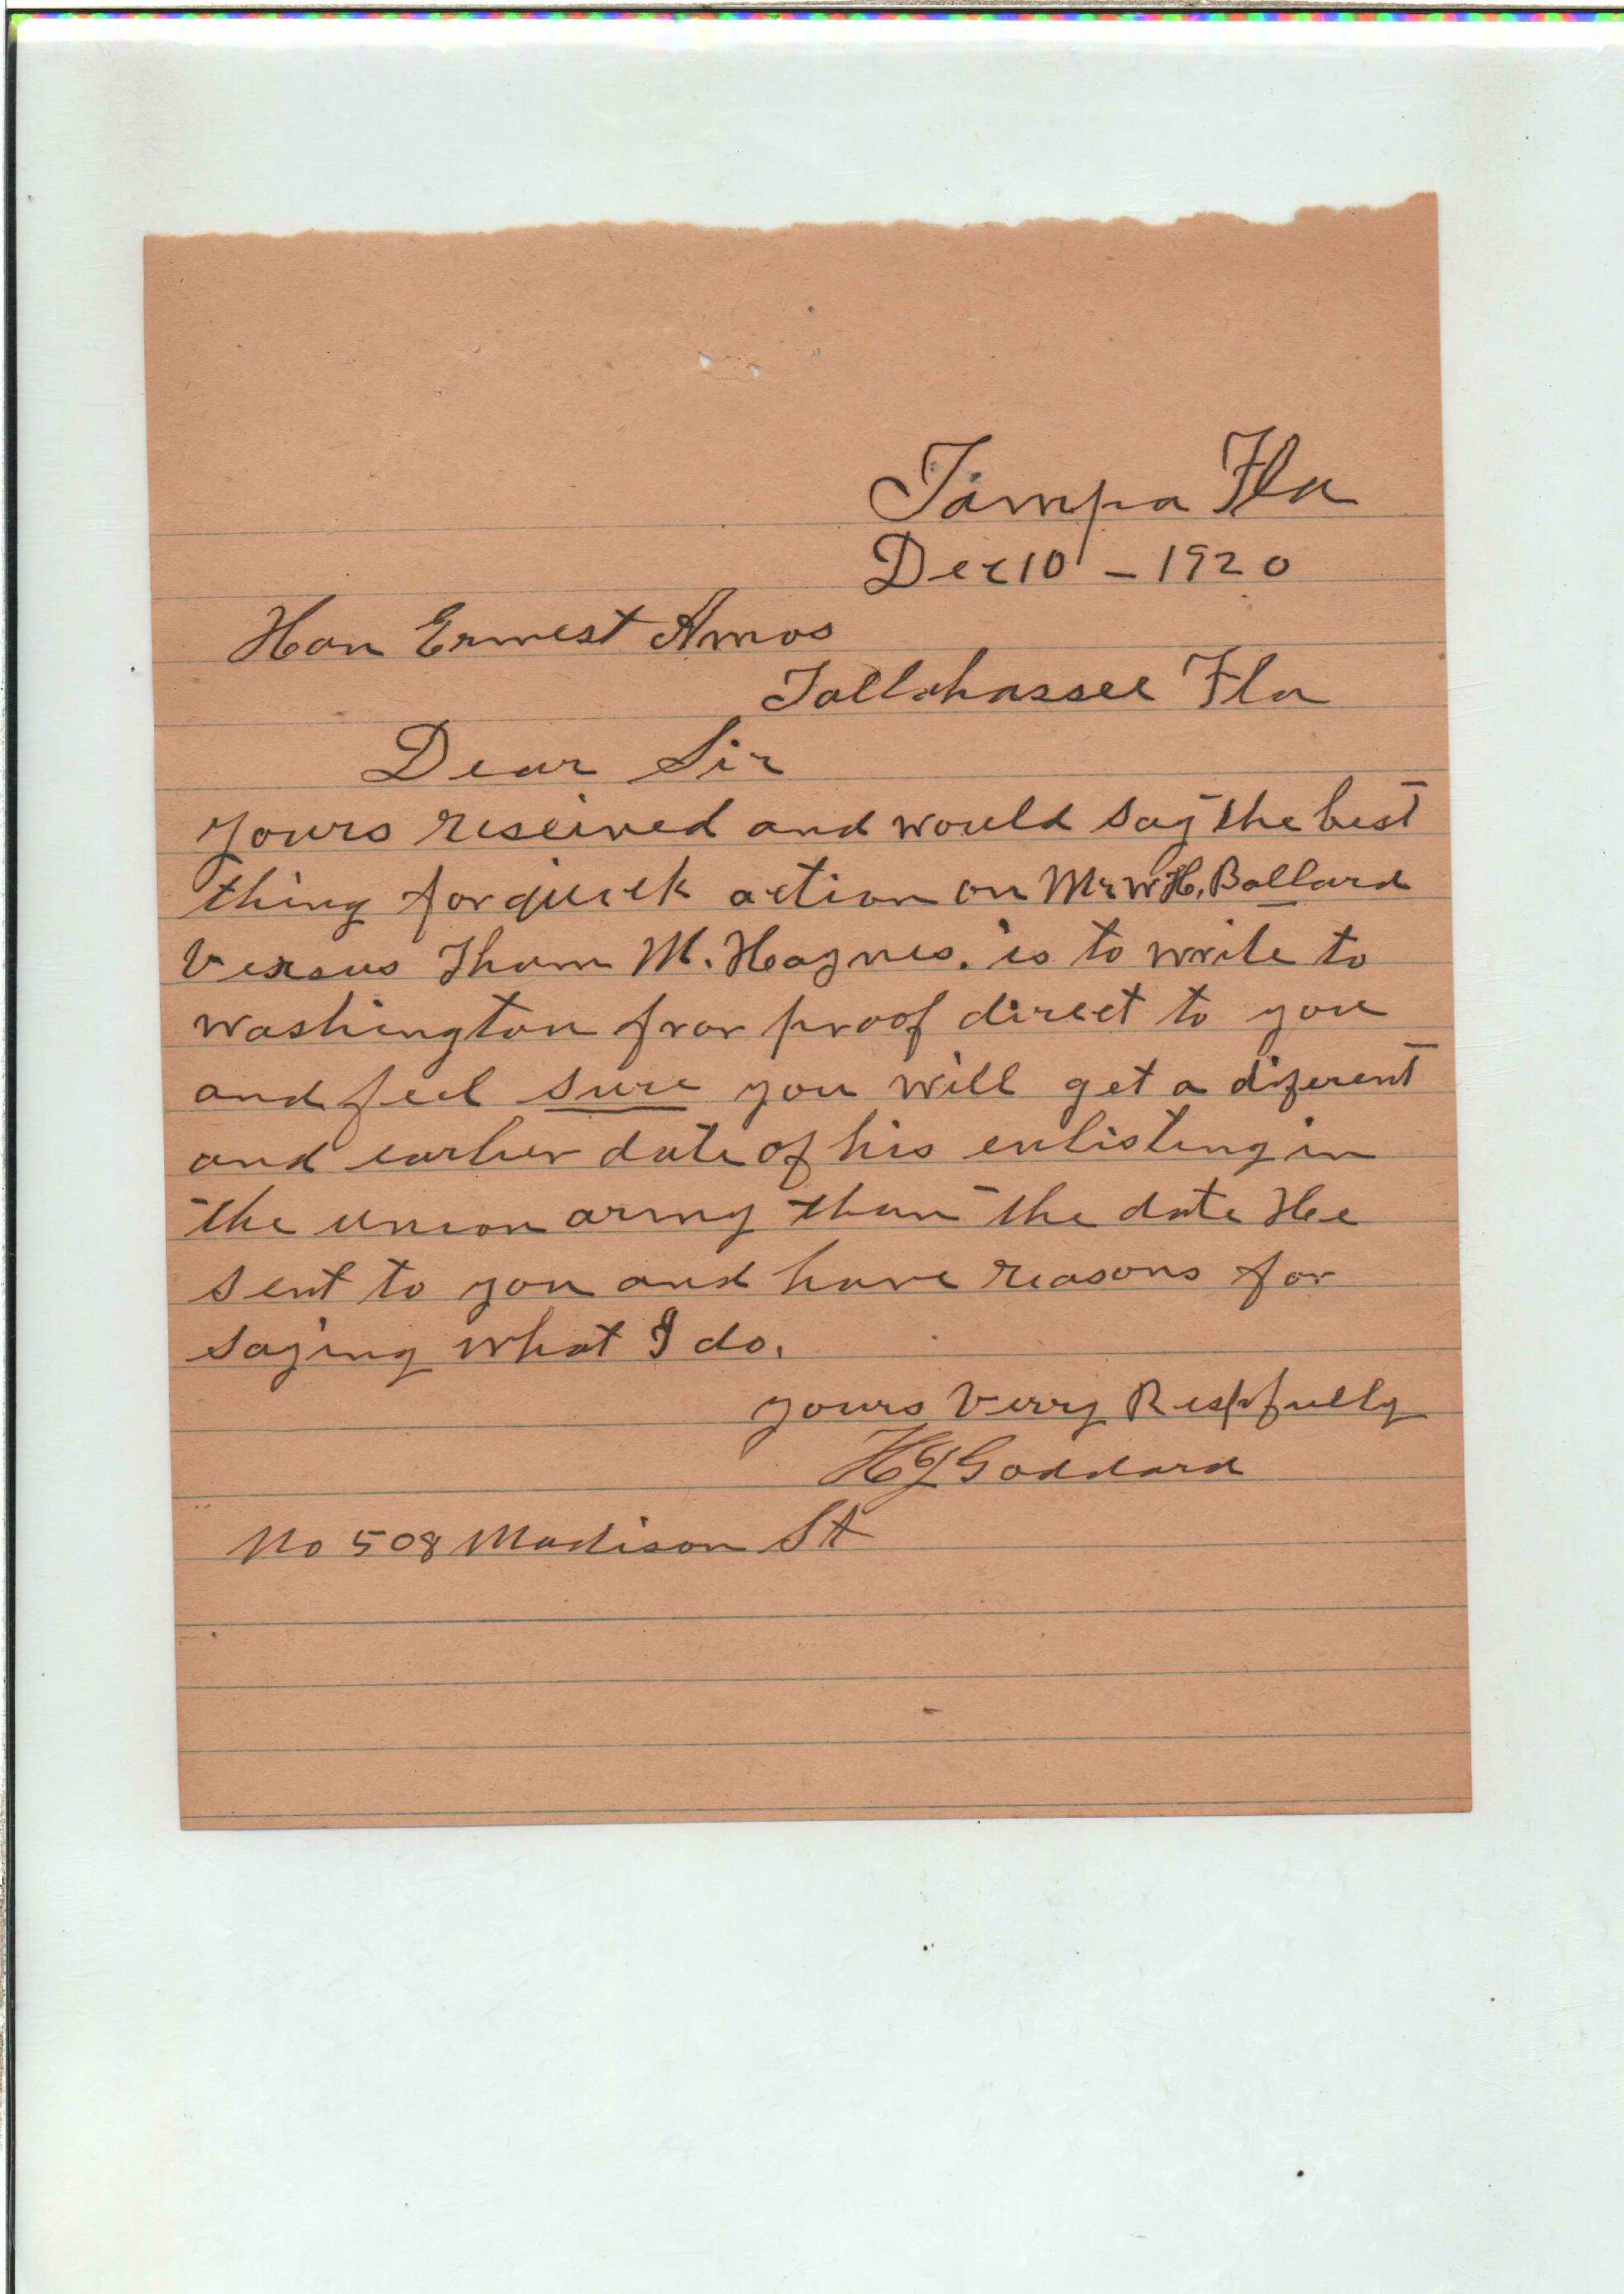 Tampa Fla
Dec 10 - 1920
Hon Ernest Amos
Tallahassee Fla
Dear Sir
yours reseived and would say the best
thing for quick action on Mr W H. Ballard
versus Thom M. Haynes. is to write to
washington fror proof direct to you
and feel sure you will get a diferent
and earlier date of his enlisting in
the union army than the date He
sent to you and have reasons for
saying what I do.
yours Verry Respfully
Goddard
No 508 Madison St